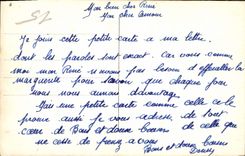 Mon bien cher René
Mon cher Amour
Je joins cette petite carte a ma lettre,
dont les paroles sont Car vois comme
moi mon René n'avons pas besoin d'effeuiller la
marguerite pour savoir que chaque jour
nous nous aimons davantage.
Mais une petite carte comme celle ci le
prouve aussi je vous adresse de tout
cœur de Bons et doux baisers de celle qui
ne cesse de penser a vous
Bons et doux baisers